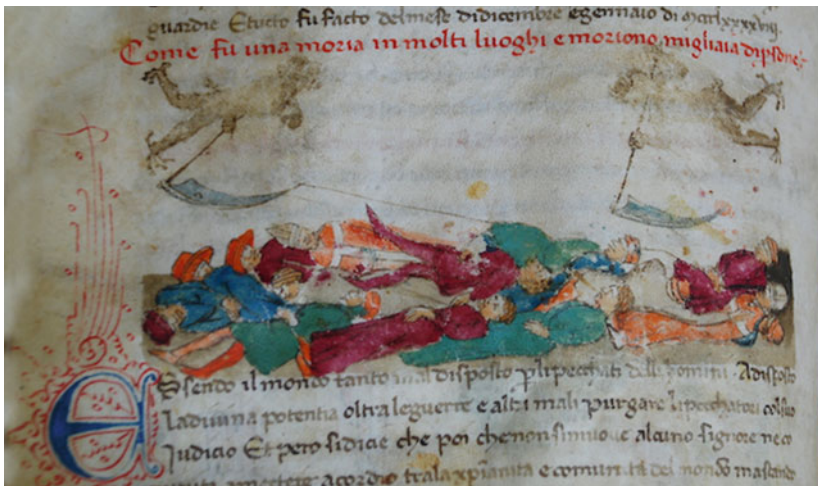 guardie Et tucto fu facto del mese di dicembre e gennaio di
Come fu una moria in molti luoghi e moriono migliaia di psone
Essendo il mondo tanto mal disposto p li pecchati delli homini. A disposto
la divina potentia oltra le guerre e altri mali purgare li pecchatori col suo
Judicio Et pero si dicie che poi che non si muove alcuno signore ne co
acordio tra la xpianita e comunita del mondo